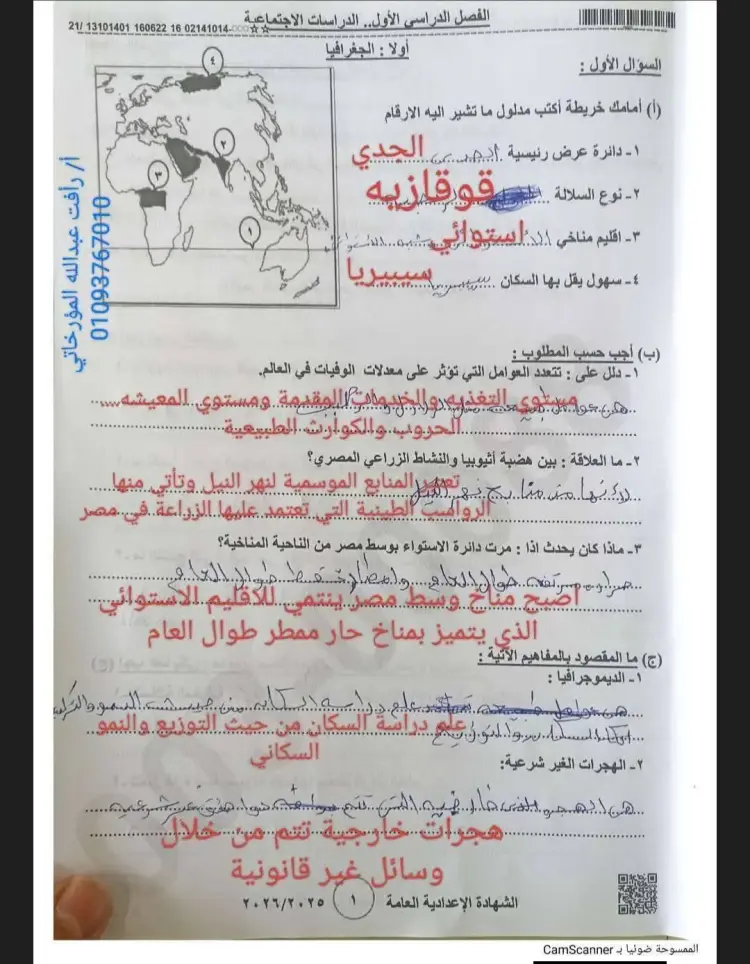 الفصل الدراسي الأول.. الدراسات الاجتماعية
21/ 13101401 160622 16 02141014-
أولا : الجغرافيا
السؤال الأول :
(أ) أمامك خريطة أكتب مدلول ما تشير اليه الارقام
١- دائرة عرض رئيسية الجدي
٢- نوع السلالة قوقازيه
٣- اقليم مناخي استوائي
٤- سهول يقل بها السكان سيبيريا
٤
٢
٣
١
أ/ رأفت عبدالله المؤرخاتي
01093767010
(ب) أجب حسب المطلوب :
١- دلل على : تتعدد العوامل التي تؤثر على معدلات الوفيات في العالم.
مستوي التغذيه والخدمات المقدمة ومستوي المعيشه
الحروب والكوارث الطبيعية
٢- ما العلاقة : بين هضبة أثيوبيا والنشاط الزراعي المصري؟
تعتبر المنابع الموسمية لنهر النيل وتأتي منها
الرواسب الطينية التي تعتمد عليها الزراعة في مصر
٣- ماذا كان يحدث اذا : مرت دائرة الاستواء بوسط مصر من الناحية المناخية؟
طوال العام
طوال العام
اصبح مناخ وسط مصر ينتمي للاقليم الاستوائي
الذي يتميز بمناخ حار ممطر طوال العام
(ج) ما المقصود بالمفاهيم الآتية :
١- الديموجرافيا :
علم دراسة السكان من حيث النمو
علم دراسة السكان من حيث التوزيع والنمو
السكاني
٢- الهجرات الغير شرعية:
هجرات خارجية تتم من خلال
وسائل غير قانونية
الشهادة الإعدادية العامة ١ ٢٠٢٦/٢٠٢٥
الممسوحة ضوئيا بـ CamScanner